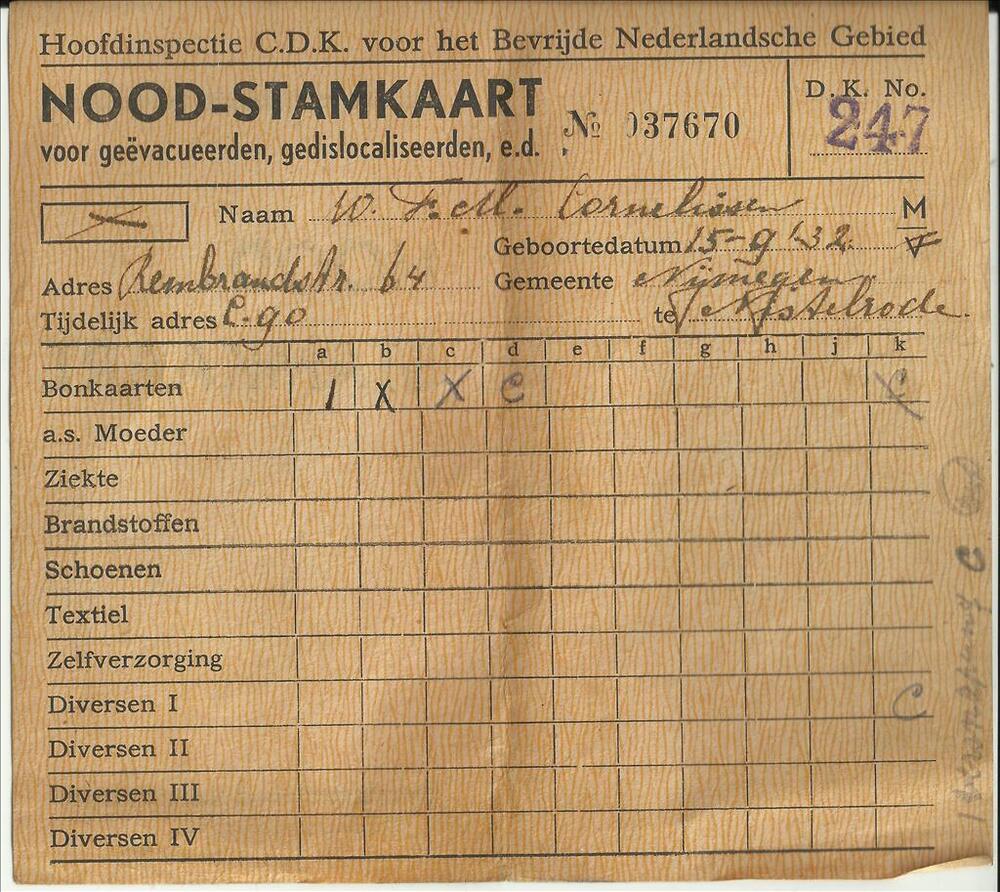 Hoofdinspectie C.D.K. voor het Bevrijde Nederlandsche Gebied
NOOD-STAMKAART
voor geëvacueerden, gedislocaliseerden, e.d.
№ 037670
D. K. No.
247
Naam W. F. M. Cornelissen M
Geboortedatum 15-9-'32. V
Adres Rembrandstr. 64 Gemeente Nijmegen
Tijdelijk adres C-90 te Nistelrode.
a b c d e f g h j k
Bonkaarten 1 X X C C
a.s. Moeder
Ziekte
Brandstoffen
Schoenen
Textiel
Zelfverzorging
Diversen I C
Diversen II
Diversen III
Diversen IV